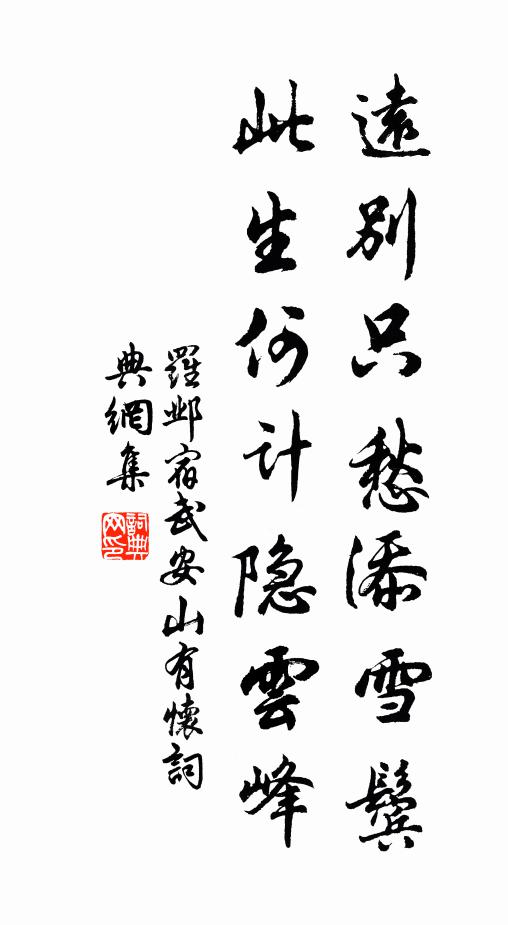 遠別只愁添雪鬢
此生何計隐雲峰
羅鄴宿武安山有懷詞
典網集
詞典
网印